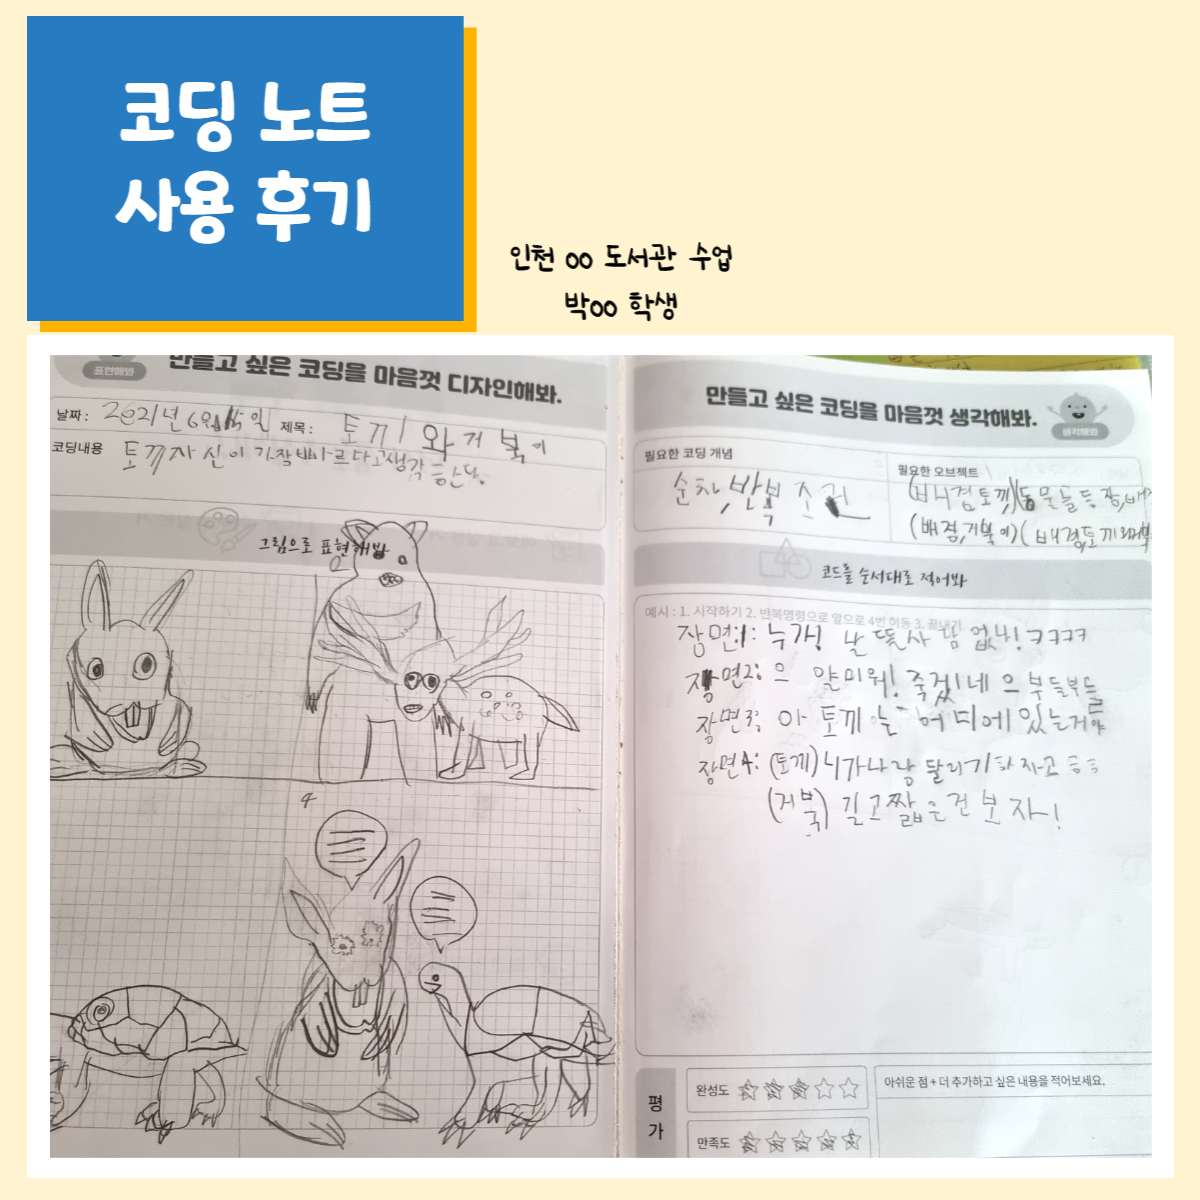 코딩 노트
사용 후기
인천 oo 도서관 수업
박oo 학생
표현해봐
만들고 싶은 코딩을 마음껏 디자인해봐.
날짜 : 2021년 6월 일 제목 : 토끼와 거북이
코딩내용 토끼자신이 가장 빠르다고생각한다.
그림으로 표현해봐
2
4
만들고 싶은 코딩을 마음껏 생각해봐.
생각해봐
필요한 코딩 개념
순차, 반복 조건
필요한 오브젝트
(배경토끼)(동물들등장,배경
(배경,거북이)(배경,토끼와거북
코드를 순서대로 적어봐
예시 : 1. 시작하기 2. 반복명령으로 앞으로 4번 이동 3. 끝내기
장면1: 누가! 날 뜷사람 없니! ㅋㅋㅋㅋ
장면2: 으 얄미워! 죽겠네 으 부들부들
장면3: 아 토끼는 어디에 있는거야
장면4: (토끼) 니가나랑 달리기하자고
(거북) 길고짧은건 보자!
평가
완성도
만족도
아쉬운 점 + 더 추가하고 싶은 내용을 적어보세요.